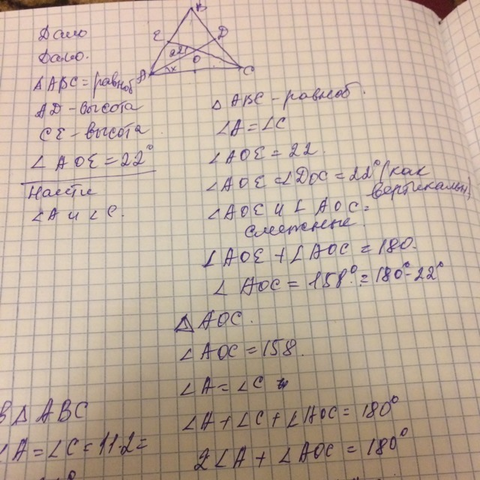 Дано
Дано.
△ABC = равноб
AD - высота
CE - высота
∠AOE = 22°
Найти
∠A и ∠C.
B
E
D
22°
O
A
x
C
△ABC - равноб.
∠A = ∠C
∠AOE = 22.
∠AOE = ∠DOC = 22° (как
вертикальн)
∠AOE и ∠AOC =
смежные.
∠AOE + ∠AOC = 180.
∠AOC = 158° = 180° - 22°
△AOC.
∠AOC = 158.
∠A = ∠C
∠A + ∠C + ∠AOC = 180°
2∠A + ∠AOC = 180°
В △ABC
∠A = ∠C = 11·2 =